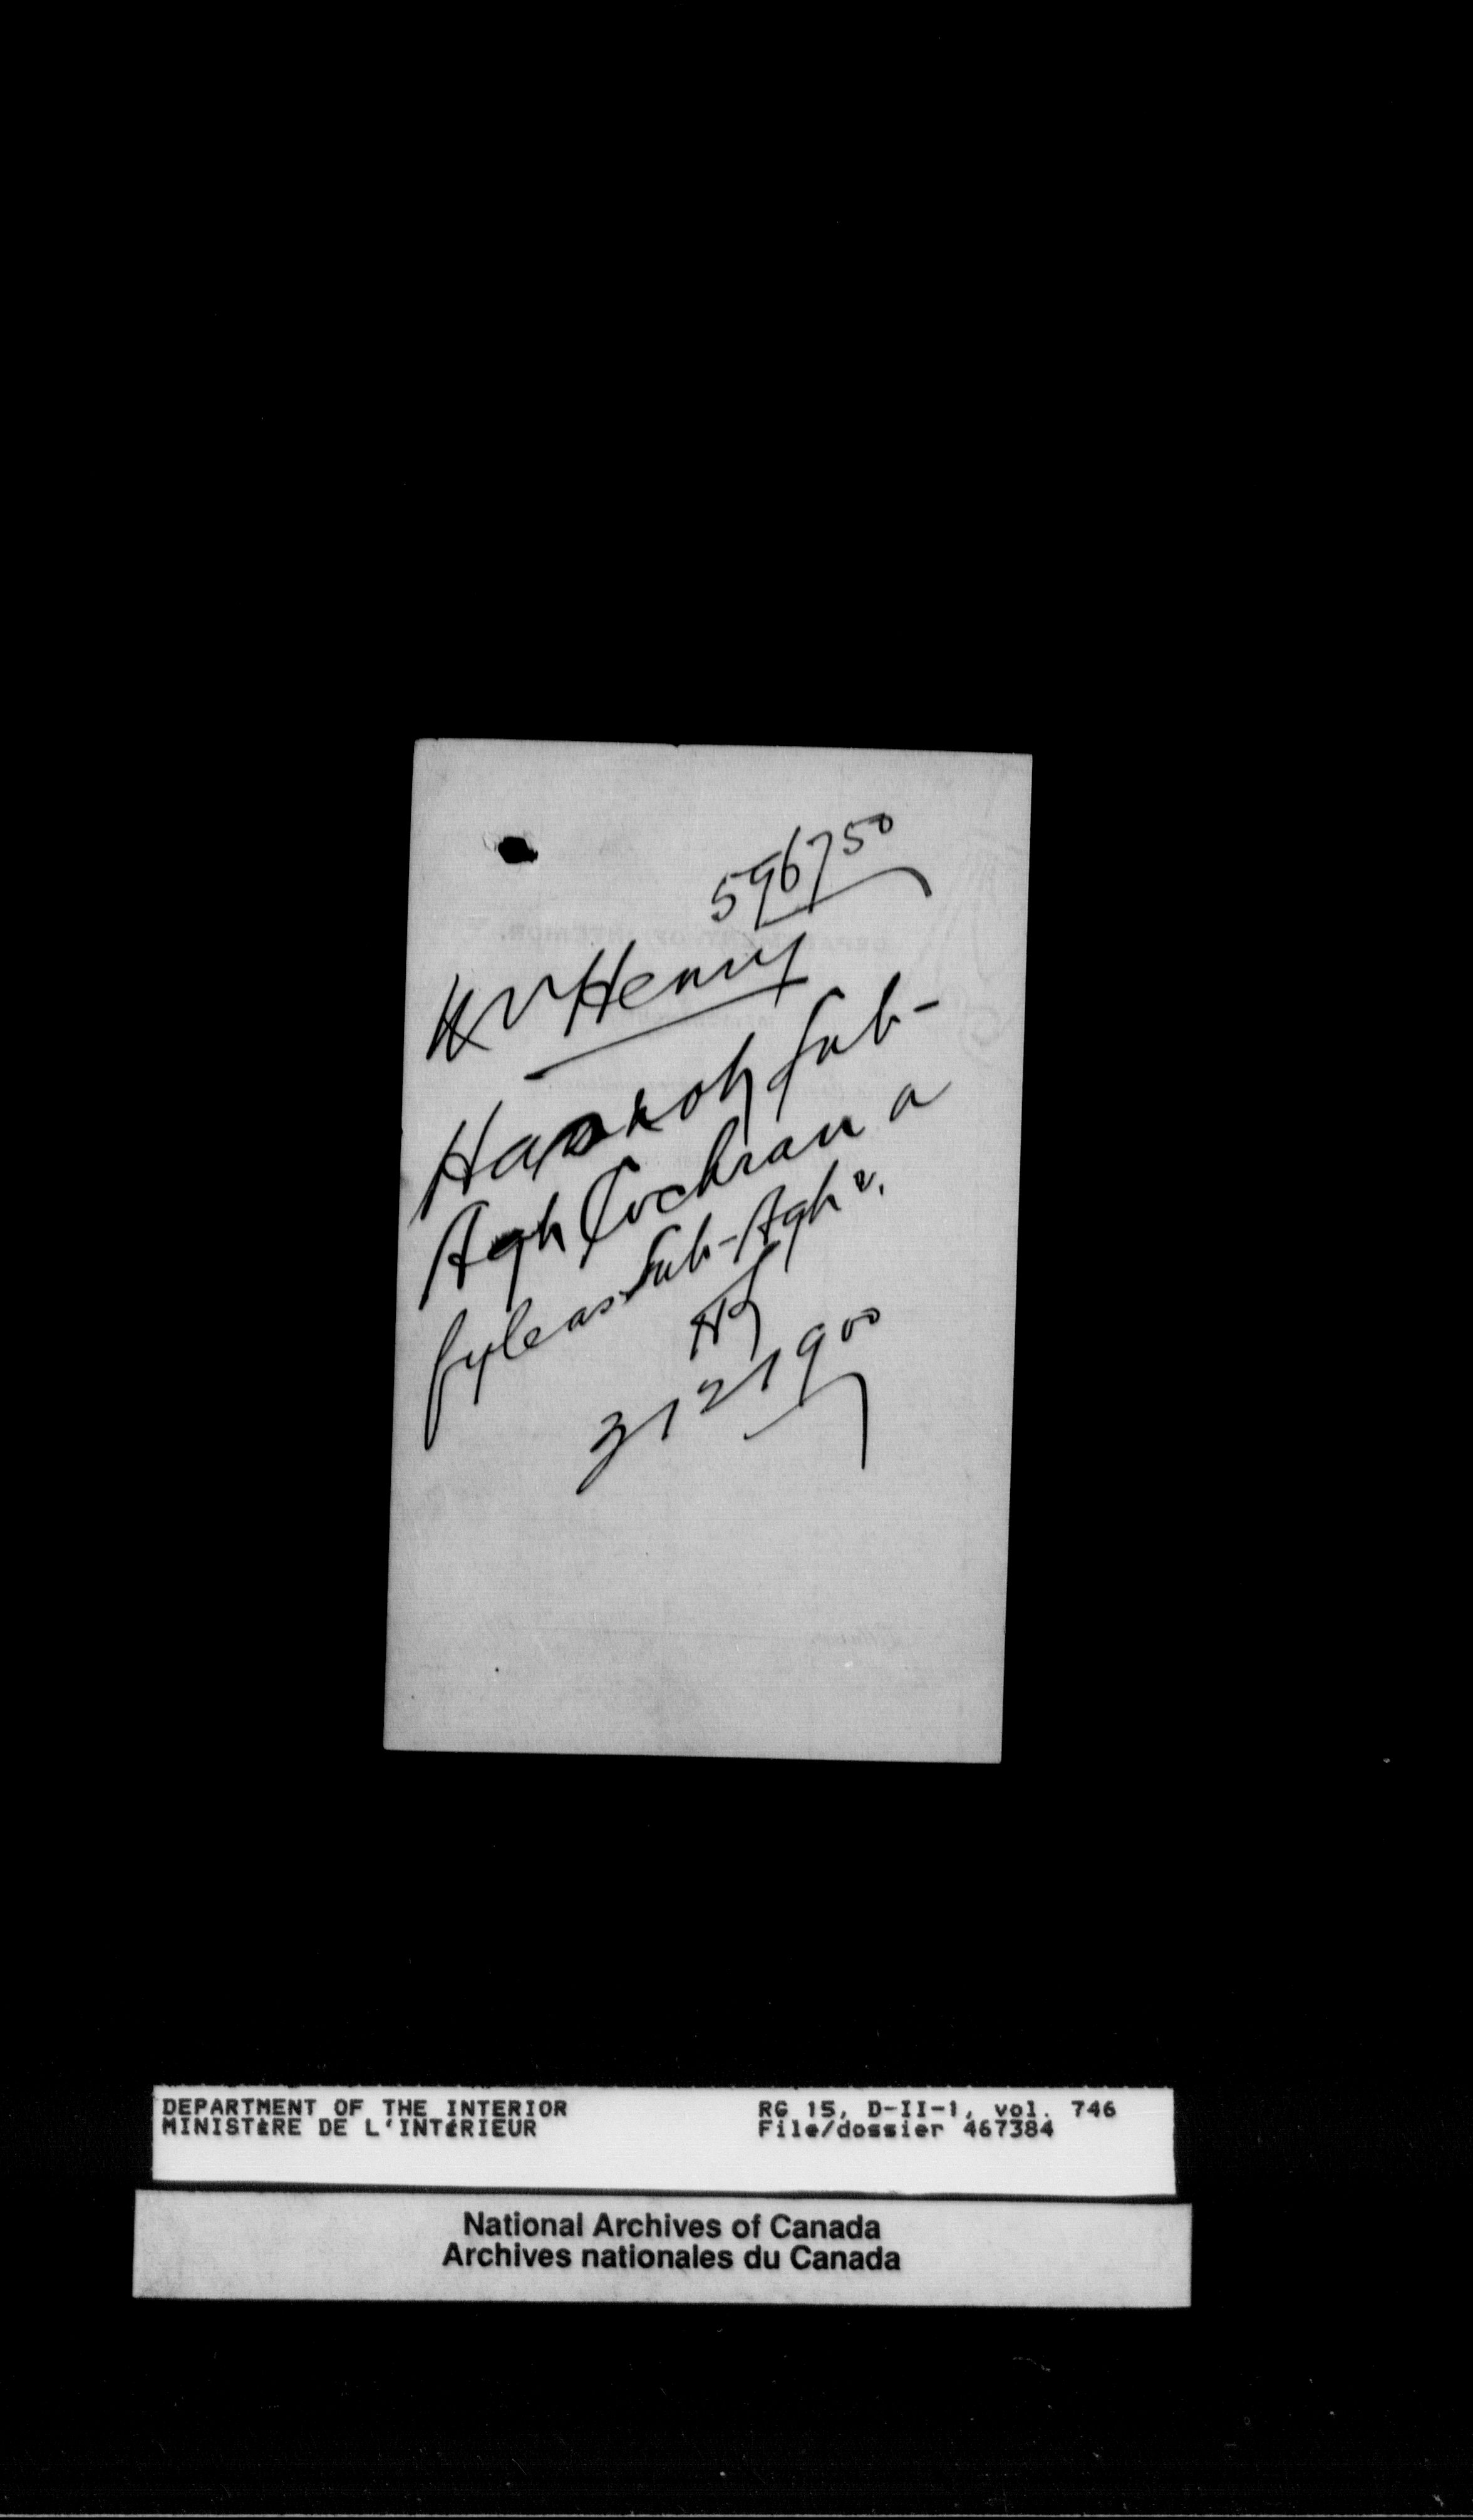 596750
Mr Henry
Hannah Sub-
Agt Cochran a
fyle as Sub-Agt
31 21 900
DEPARTMENT OF THE INTERIOR
MINISTÈRE DE L'INTÉRIEUR
RG 15, D-II-1, vol. 746
File/dossier 467384
National Archives of Canada
Archives nationales du Canada